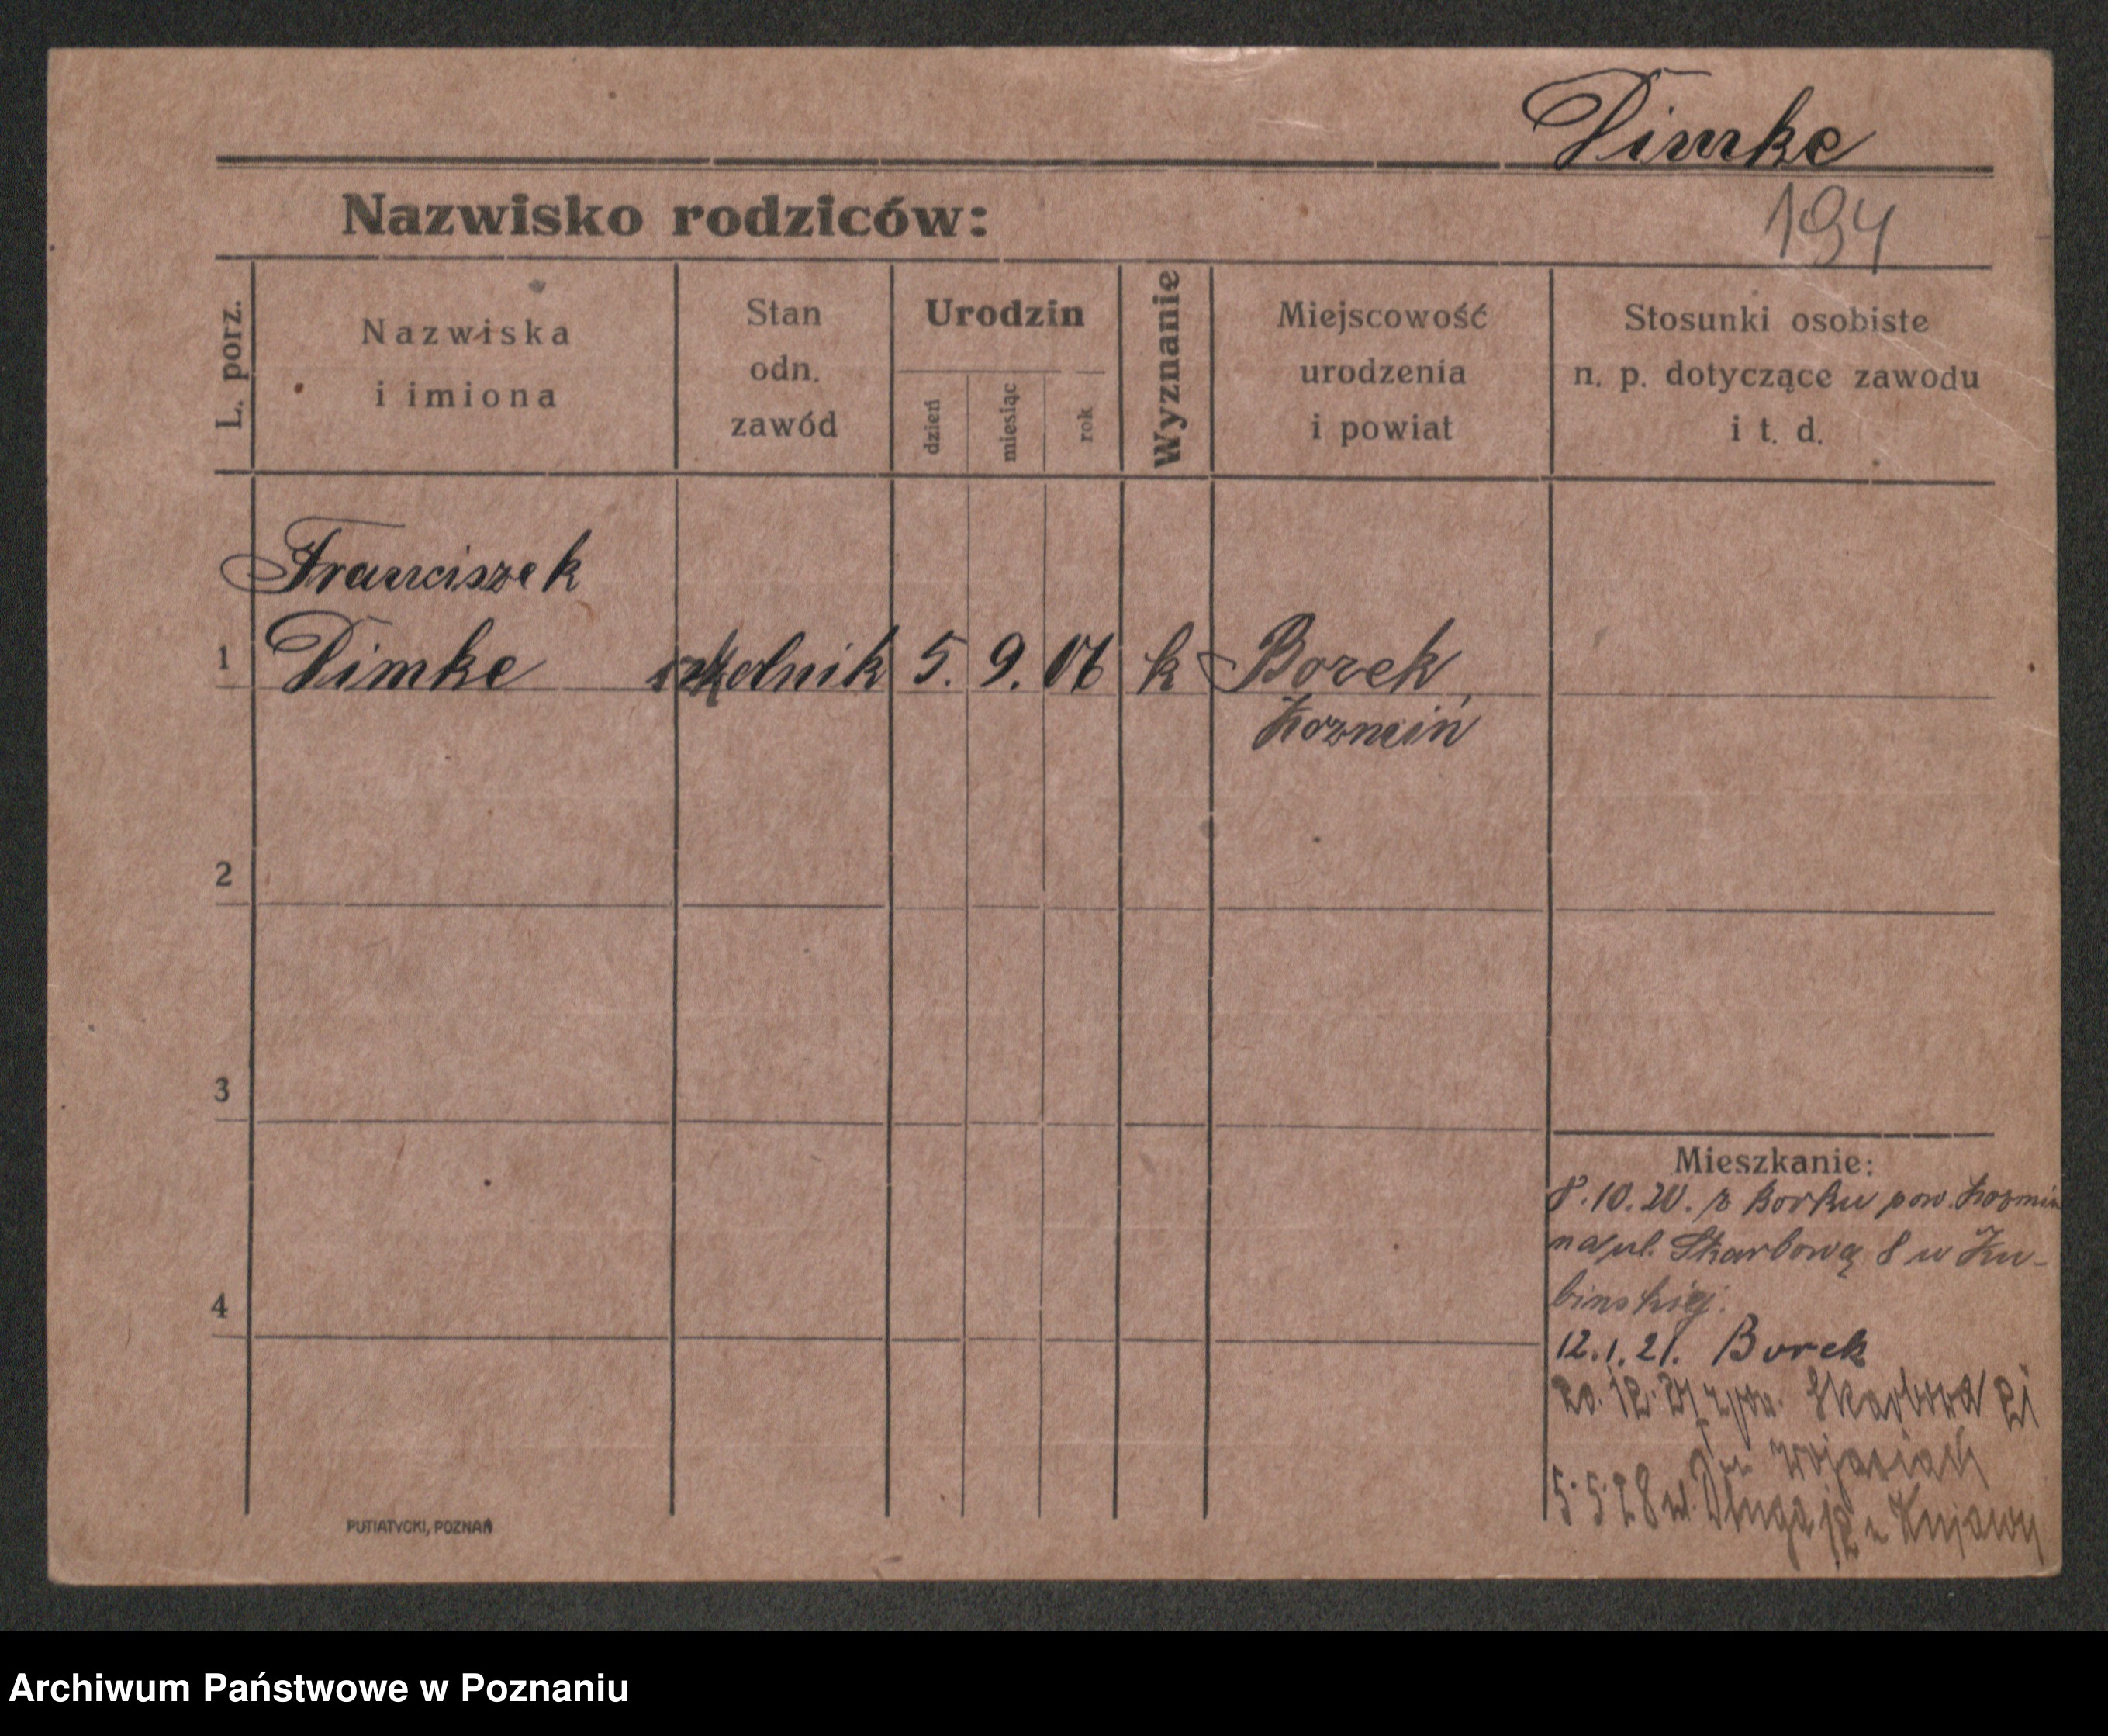 Dimke
194
Nazwisko rodziców:
L. porz.
Nazwiska
i imiona
Stan
odn.
zawód
Urodzin
dzień
miesiąc
rok
Wyznanie
Miejscowość
urodzenia
i powiat
Stosunki osobiste
n. p. dotyczące zawodu
i t. d.
Franciszek
1 Dimke szkolnik 5. 9. 06 k Borek
Kozmiń
2
3
4
Mieszkanie:
8.10.20. z Borku pow. Kozmin
na ul. Skarbową 8 u
binskiej.
12.1.21. Borek
20. 12. Skarbowa
5.5.28 ul. Długa 12 u
PUTIATYCKI, POZNAŃ
Archiwum Państwowe w Poznaniu